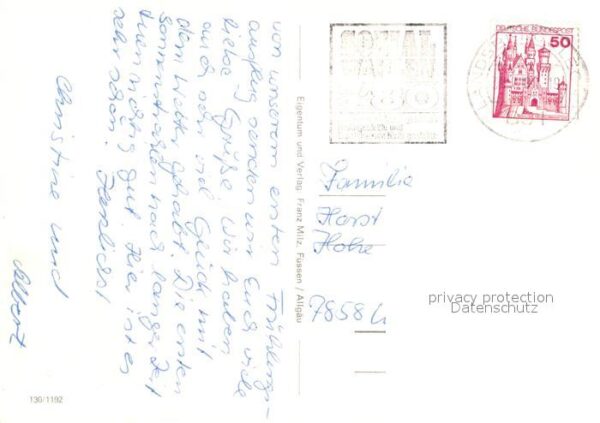 von unserem ersten Frühlings-
ausflug senden wir Euch viele
liebe Grüße. Wir haben
auch sehr viel Glück mit
dem Wetter gehabt. Die ersten
Sonnenstrahlen nach langer Zeit
tuen richtig gut. Hier ist es
sehr schön. Herzlichst
Christine und
Albert
Eigentum und Verlag Franz Milz, Füssen / Allgäu
130/1192
DEUTSCHE BUNDESPOST
50
SOZIAL
WAHLEN
Familie
Horst
78584
privacy protection
Datenschutz